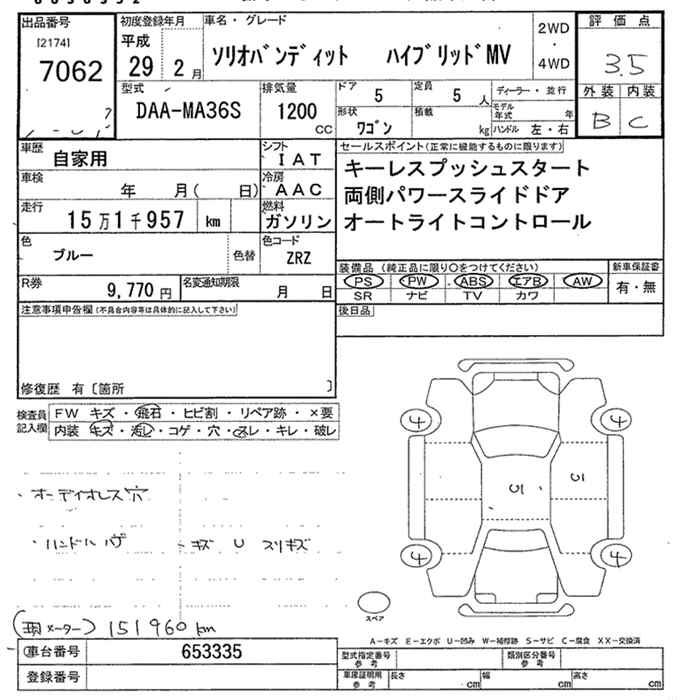 出品番号 初度登録年月 車名・グレード 2WD ・ 4WD 評価点
[2174] 7062 平成 29 2月 ソリオバンディット ハイブリッドMV 3.5
型式 排気量 ドア 5 定員 5人 ディーラー・並行 外装 内装
DAA-MA36S 1200 CC 形状 ワゴン 積載 kg モデル年式 年 ハンドル 左・右 B C
車歴 自家用 シフト IAT セールスポイント(正常に機能するものに限ります)
車検 年 月( 日) 冷房 AAC キーレスプッシュスタート
走行 15万1千957 km 燃料 ガソリン 両側パワースライドドア
オートライトコントロール
色 ブルー 色替 色コード ZRZ
装備品(純正品に限り○をつけてください) 新車保証書
R券 9,770円 名変通知期限 月 日 PS PW ABS エアB AW 有・無
SR ナビ TV カワ
注意事項申告欄(不具合内容等は具体的に記入して下さい) 後日品
修復歴 有〔箇所 〕
検査員 記入欄 FW キズ・飛石・ヒビ割・リペア跡・×要
内装 キズ・汚レ・コゲ・穴・ヌレ・キレ・破レ
4 4
・オーディオレス穴 U U
・ハンドルハゲ ・キズ U スリキズ
4 4
スペア
(現メーター) 151960 km
A-キズ E-エクボ U-凹み W-補修跡 S-サビ C-腐食 XX-交換済
車台番号 653335 型式指定番号 参考 類別区分番号 参考
登録番号 車庫証明用 参考 長さ cm 幅 cm 高さ cm